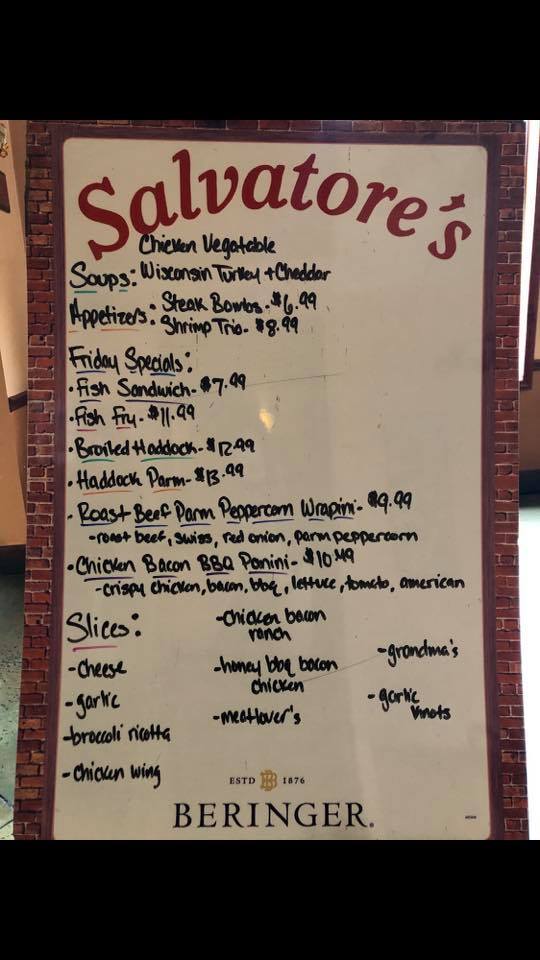 Salvatore's
Chicken Vegatable
Soups: Wisconsin Turkey + Cheddar
Appetizers: Steak Bombs - $6.99
Shrimp Trio - $8.99
Friday Specials:
• Fish Sandwich - $7.99
• Fish Fry - $11.99
• Broiled Haddock - $12.99
• Haddock Parm - $13.99
- Roast Beef Parm Peppercorn Wrapini - $9.99
- roast beef, swiss, red onion, parm peppercorn
• Chicken Bacon BBQ Panini - $10.49
- crispy chicken, bacon, bbq, lettuce, tomato, american
Slices:
- cheese
- garlic
- broccoli ricotta
- chicken wing
- chicken bacon
ranch
- honey bbq bacon
chicken
- meatlover's
- grandma's
- garlic
knots
ESTD BB 1876
BERINGER.